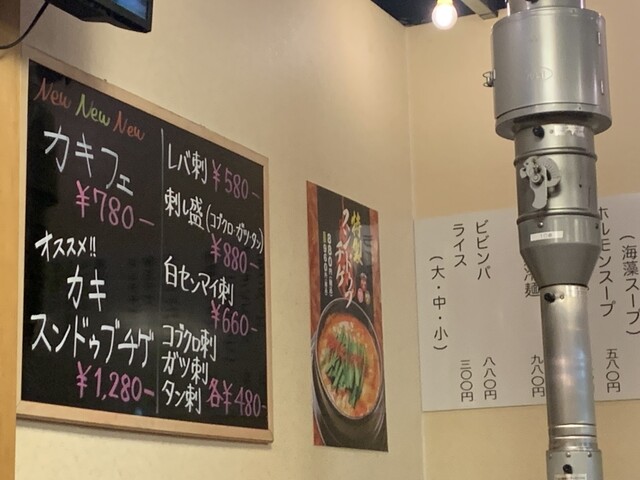 New New New
カキフェ
¥780-
オススメ!!
カキ
スンドゥブチゲ
¥1,280-
レバ刺 ¥580-
刺し盛(コブクロ・ガツ・タン)
¥880-
白センマイ刺
¥660-
コブクロ刺
ガツ刺
タン刺 各¥480-
特製
スンドゥブチゲ
880円
(海藻スープ)
ホルモンスープ 五八〇円
麺 九八〇
ビビンバ 八八〇円
ライス 三〇〇円
(大・中・小)